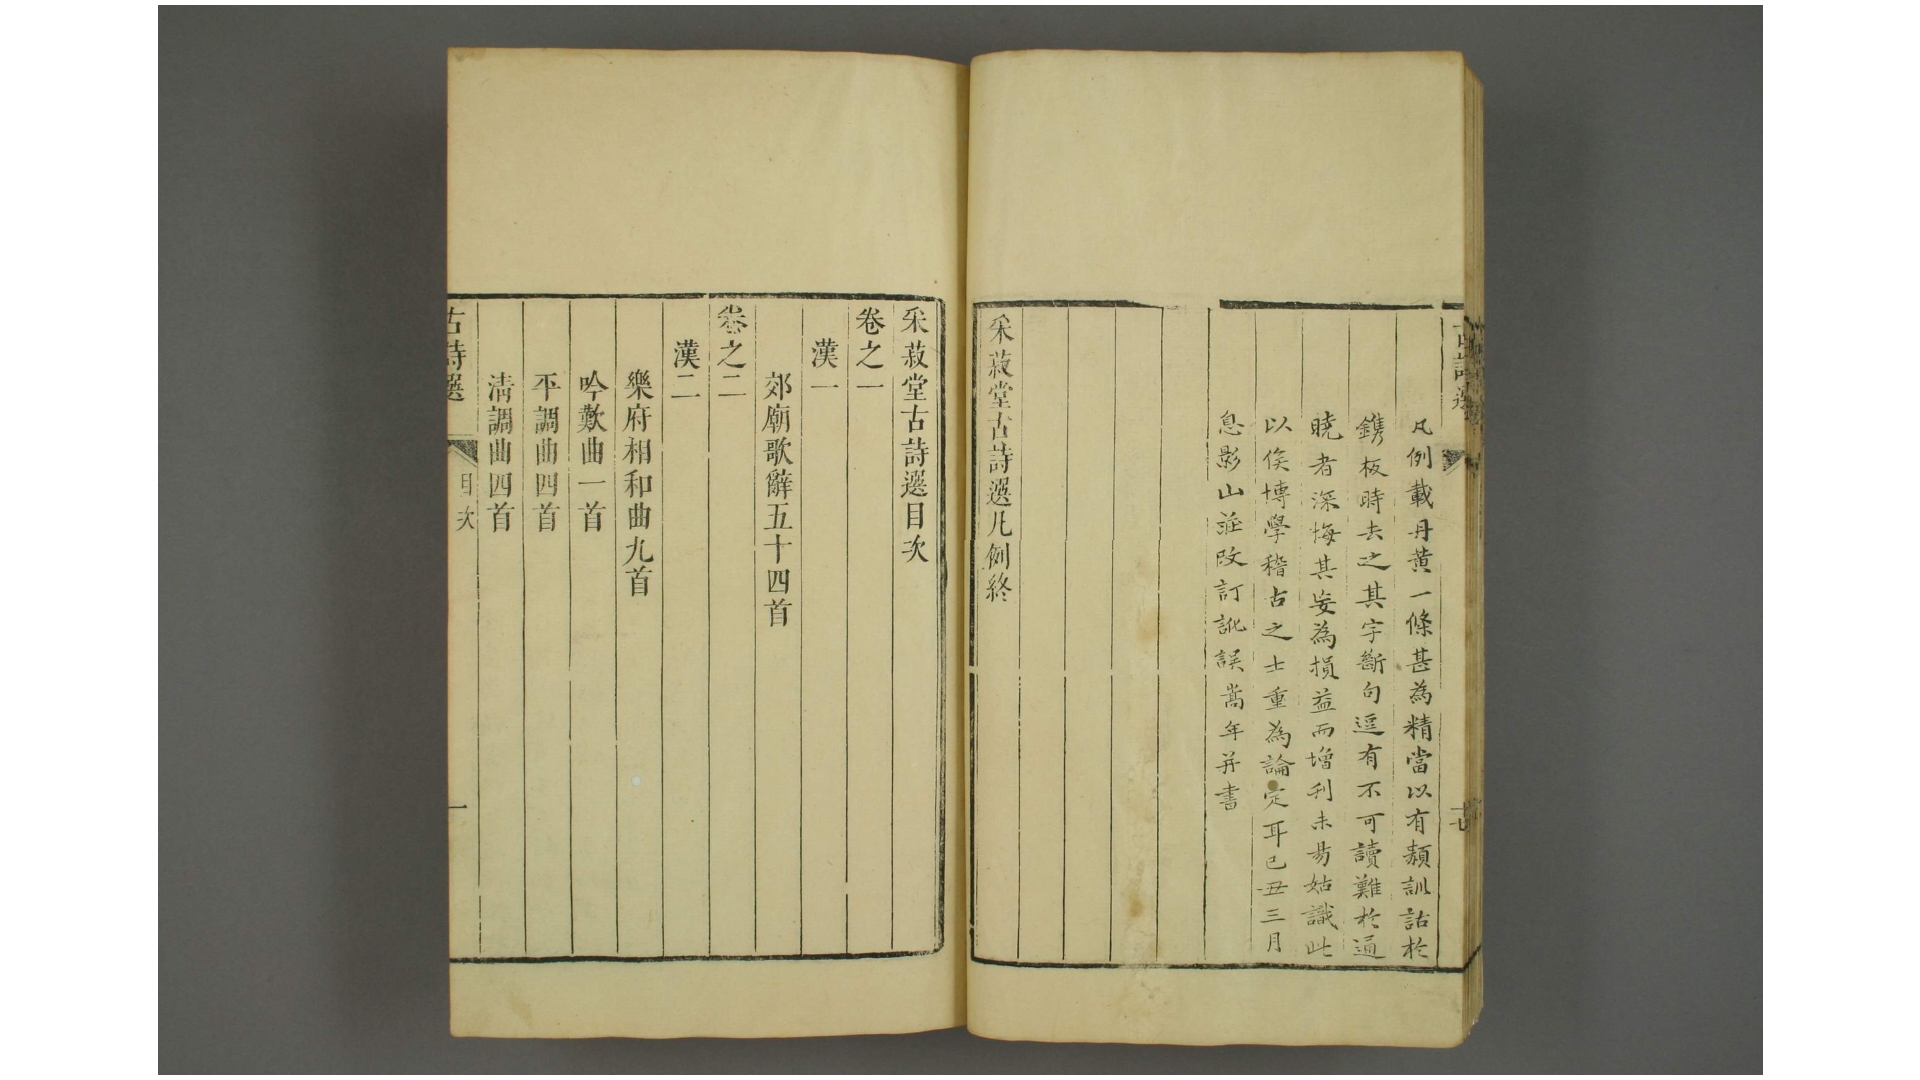 凡例載丹黃一條甚為精當以有類訓詁於
鐫板時去之其字斷句逗有不可讀難於通
曉者深悔其妄為損益而增刊未易姑識此
以俟博學稽古之士重為論定耳己丑三月
息影山莊改訂訛誤嵩年并書
采菽堂古詩選凡例終
采菽堂古詩選目次
卷之一
漢一
郊廟歌辭五十四首
卷之二
漢二
樂府相和曲九首
吟歎曲一首
平調曲四首
清調曲四首
古詩選 目次 一